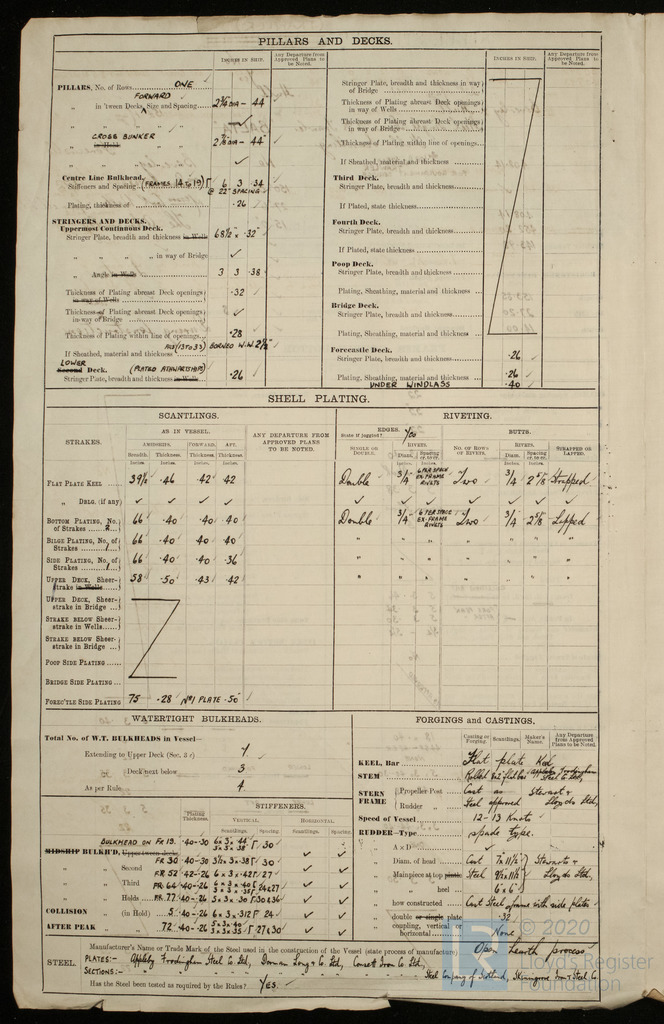 PILLARS AND DECKS.
INCHES IN SHIP.
Any Departure from Approved Plans to be Noted.
PILLARS, No. of Rows ONE
FORWARD
in 'tween Decks, Size and Spacing 2¾ DIA - 44
" " " " ✓
CROSS BUNKER
in Hold 2⅞ DIA - 44
" " ✓
Centre Line Bulkhead.
Stiffeners and Spacing (FRAMES 14 to 19) 6 3 .34
@ 22" SPACING
Plating, thickness of .26
STRINGERS AND DECKS.
Uppermost Continuous Deck.
Stringer Plate, breadth and thickness in Wells 68½" x .32"
" " " " in way of Bridge ✓
" Angle in Wells 3 3 .38
Thickness of Plating abreast Deck openings in way of Wells .32
Thickness of Plating abreast Deck openings in way of Bridge ✓
Thickness of Plating within line of openings .28
If Sheathed, material and thickness AFT (13 TO 33) BORNEO W.W. 2½"
LOWER
Second Deck. (PLATED ATHWARTSHIPS)
Stringer Plate, breadth and thickness in Wells .26
INCHES IN SHIP.
Any Departure from Approved Plans to be Noted.
Stringer Plate, breadth and thickness in way of Bridge
Thickness of Plating abreast Deck openings in way of Wells
Thickness of Plating abreast Deck openings in way of Bridge
Thickness of Plating within line of openings
If Sheathed, material and thickness
Third Deck.
Stringer Plate, breadth and thickness
If Plated, state thickness
Fourth Deck.
Stringer Plate, breadth and thickness
If Plated, state thickness
Poop Deck.
Stringer Plate, breadth and thickness
Plating, Sheathing, material and thickness
Bridge Deck.
Stringer Plate, breadth and thickness
Plating, Sheathing, material and thickness
Forecastle Deck.
Stringer Plate, breadth and thickness .26
Plating, Sheathing, material and thickness .26
UNDER WINDLASS .40
SHELL PLATING.
SCANTLINGS.
RIVETING.
STRAKES.
AS IN VESSEL.
AMIDSHIPS. FORWARD. AFT.
Breadth. Thickness. Thickness. Thickness.
Inches. Inches. Inches. Inches.
ANY DEPARTURE FROM APPROVED PLANS TO BE NOTED.
EDGES.
State if joggled? Yes
SINGLE OR DOUBLE.
RIVETS.
Diam. Spacing cr. to cr.
BUTTS.
NO. OF ROWS OF RIVETS.
RIVETS.
Diam. Spacing cr. to cr.
STRAPPED OR LAPPED.
FLAT PLATE KEEL 39½ .46 .42 .42 Double ¾ 6 PER SPACE EX. FRAME RIVETS Two ¾ 2⅝ Strapped
" DBLG. (if any) ✓ ✓ ✓ ✓ ✓ ✓ ✓ ✓ ✓ ✓
BOTTOM PLATING, No. of Strakes 2 66 .40 .40 .40 Double ¾ 6 PER SPACE EX. FRAME RIVETS Two ¾ 2⅝ Lapped
BILGE PLATING, No. of Strakes 1 66 .40 .40 .40 " " " " " "
SIDE PLATING, No. of Strakes 1 66 .40 .40 .36 " " " " " "
UPPER DECK, Sheerstrake in Wells 58 .50 .43 .42 " " " " " "
UPPER DECK, Sheerstrake in Bridge
STRAKE BELOW Sheerstrake in Wells
STRAKE BELOW Sheerstrake in Bridge
POOP SIDE PLATING
BRIDGE SIDE PLATING
FOREC'TLE SIDE PLATING 75 .28 No 1 PLATE .50
WATERTIGHT BULKHEADS.
Total No. of W.T. BULKHEADS in Vessel—
Extending to Upper Deck (Sec. 3 c)
" Deck next below 3
As per Rule 4
STIFFENERS.
Plating Thickness.
VERTICAL. HORIZONTAL.
Scantlings. Spacing. Scantlings. Spacing.
BULKHEAD ON FR 13. .40-.30 6 x 3 x .44 30 ✓ ✓
MIDSHIP BULK'D, Upper tween decks
" " Second FR 30 .40-.30 3½ x 3 x .38 30 ✓ ✓
FR 52 .42-.26 6 x 3 x .42 27 ✓ ✓
" " Third FR 64 .40-.26 24 & 27 ✓ ✓
" " Holds FR 77 .40-.26 5 x 3 x .30 30 & 36 ✓ ✓
COLLISION " (in Hold) 5 .40-.26 6 x 3 x .312 24 ✓ ✓
AFTER PEAK " 72 .40-.26 27 & 30 ✓ ✓
FORGINGS and CASTINGS.
Casting or Forging. Scantlings. Maker's Name. Any Departure from Approved Plans to be Noted.
KEEL, Bar Flat plate Keel
STEM Rolled flat bar Appleby Frodingham Steel Co. Ltd.,
STERN FRAME Propeller Post Cast as Stewart &
Rudder " Steel approved Lloyds Ltd,
Speed of Vessel 12-13 Knots
RUDDER—Type spade type.
" A x D ✓
" Diam. of head Cast 7" x 11½" Stewarts &
" Mainpiece at top pintle Steel 9½ x 11½ Lloyds Ltd.
" " heel 6 x 6
" how constructed Cast Steel frame with side plates
" double or single plate .32
" coupling, vertical or horizontal None.
STEEL.
Manufacturer's Name or Trade Mark of the Steel used in the construction of the Vessel (state process of manufacture) Open hearth process
PLATES:- Appleby Frodingham Steel Co. Ltd, Dorman Long & Co. Ltd, Consett Iron Co. Ltd,
SECTIONS:- " " " " Steel Company of Scotland, Skinningrove Iron & Steel Co
Has the Steel been tested as required by the Rules? YES.
© 2020
Lloyd's Register
Foundation